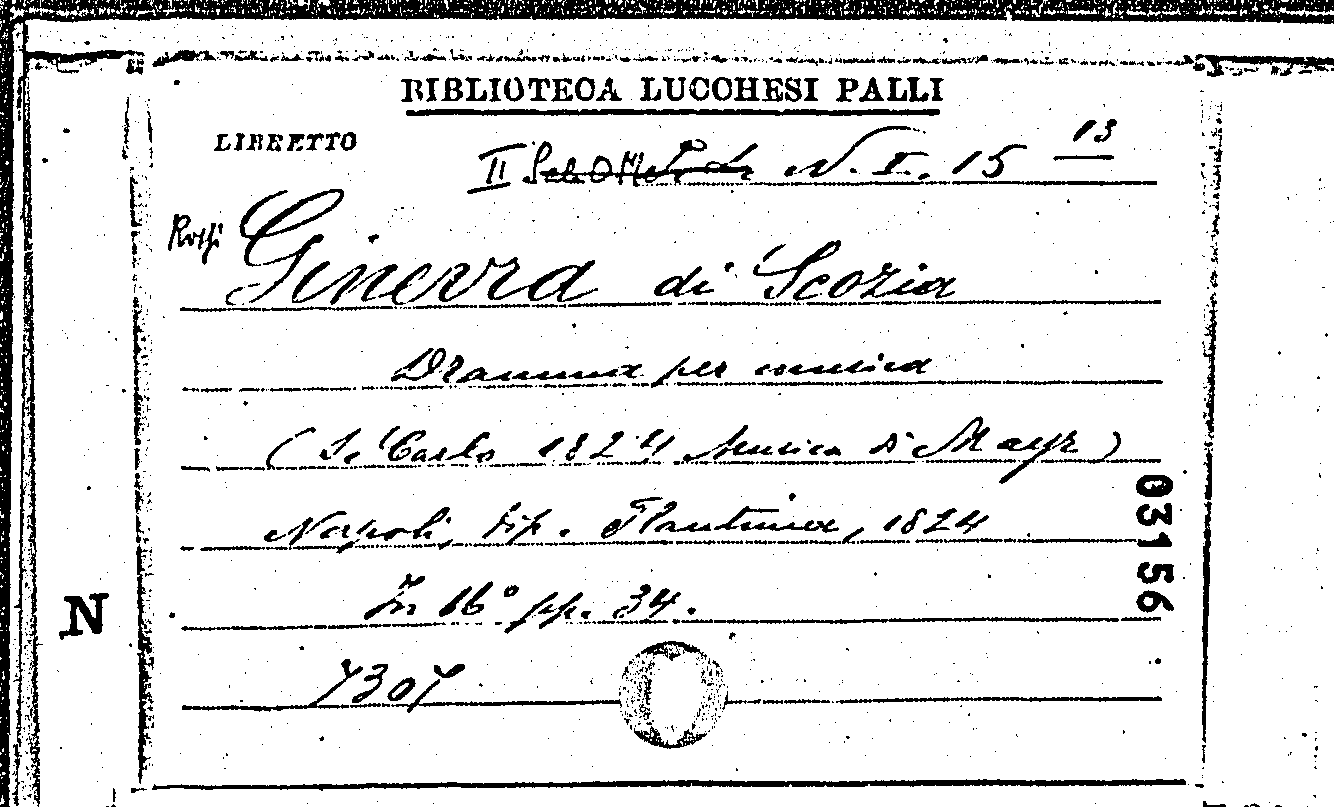 BIBLIOTECA LUCCHESI PALLI
LIBRETTO
II N. I. 15 13
Rossi
Ginevra di Scozia
Dramma per musica
(S. Carlo 1824 Musica di Mayr)
Napoli, tip. Flautina, 1824
In 16° pp. 34.
7307
03156
N